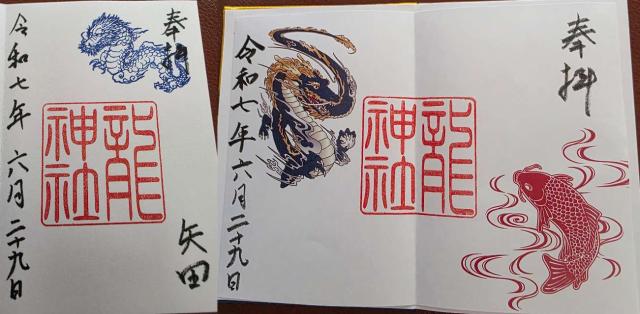 奉拝
龍神社
矢田
令和七年 六月二十九日
奉拝
龍神社
令和七年六月二十九日